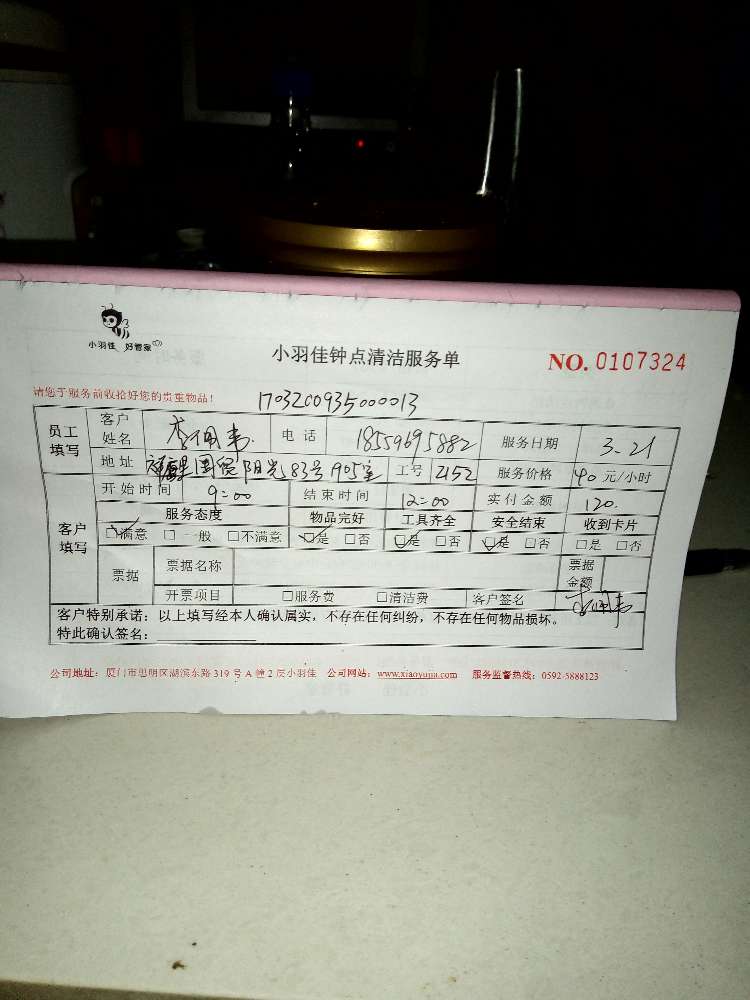 小羽佳 好管家
小羽佳钟点清洁服务单
NO. 0107324
请您于服务前收拾好您的贵重物品!
170320093500013
员工填写 客户姓名 李佩韦 电话 18559695882 服务日期 3.21
地址 国贸阳光83号1905室 工号 2152 服务价格 40 元/小时
客户填写 开始时间 9:00 结束时间 12:00 实付金额 120.
服务态度 物品完好 工具齐全 安全结束 收到卡片
☑满意 □一般 □不满意 ☑是 □否 ☑是 □否 ☑是 □否 □是 □否
票据 票据名称 票据金额
开票项目 □服务费 □清洁费 客户签名 李佩韦
客户特别承诺:以上填写经本人确认属实,不存在任何纠纷,不存在任何物品损坏。
特此确认签名:
公司地址:厦门市思明区湖滨东路319号A幢2层小羽佳 公司网站:www.xiaoyujia.com 服务监督热线:0592-5888123